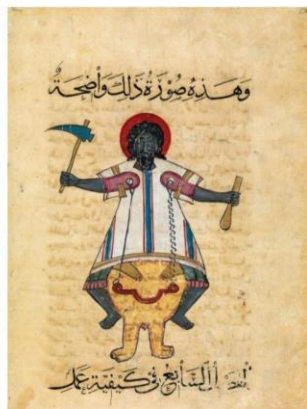 وَهَذِهِ صُورَةُ ذَلِكَ وَاضِحَةٌ
السَّابِعُ فِي كَيْفِيَّةِ عَمَلِ